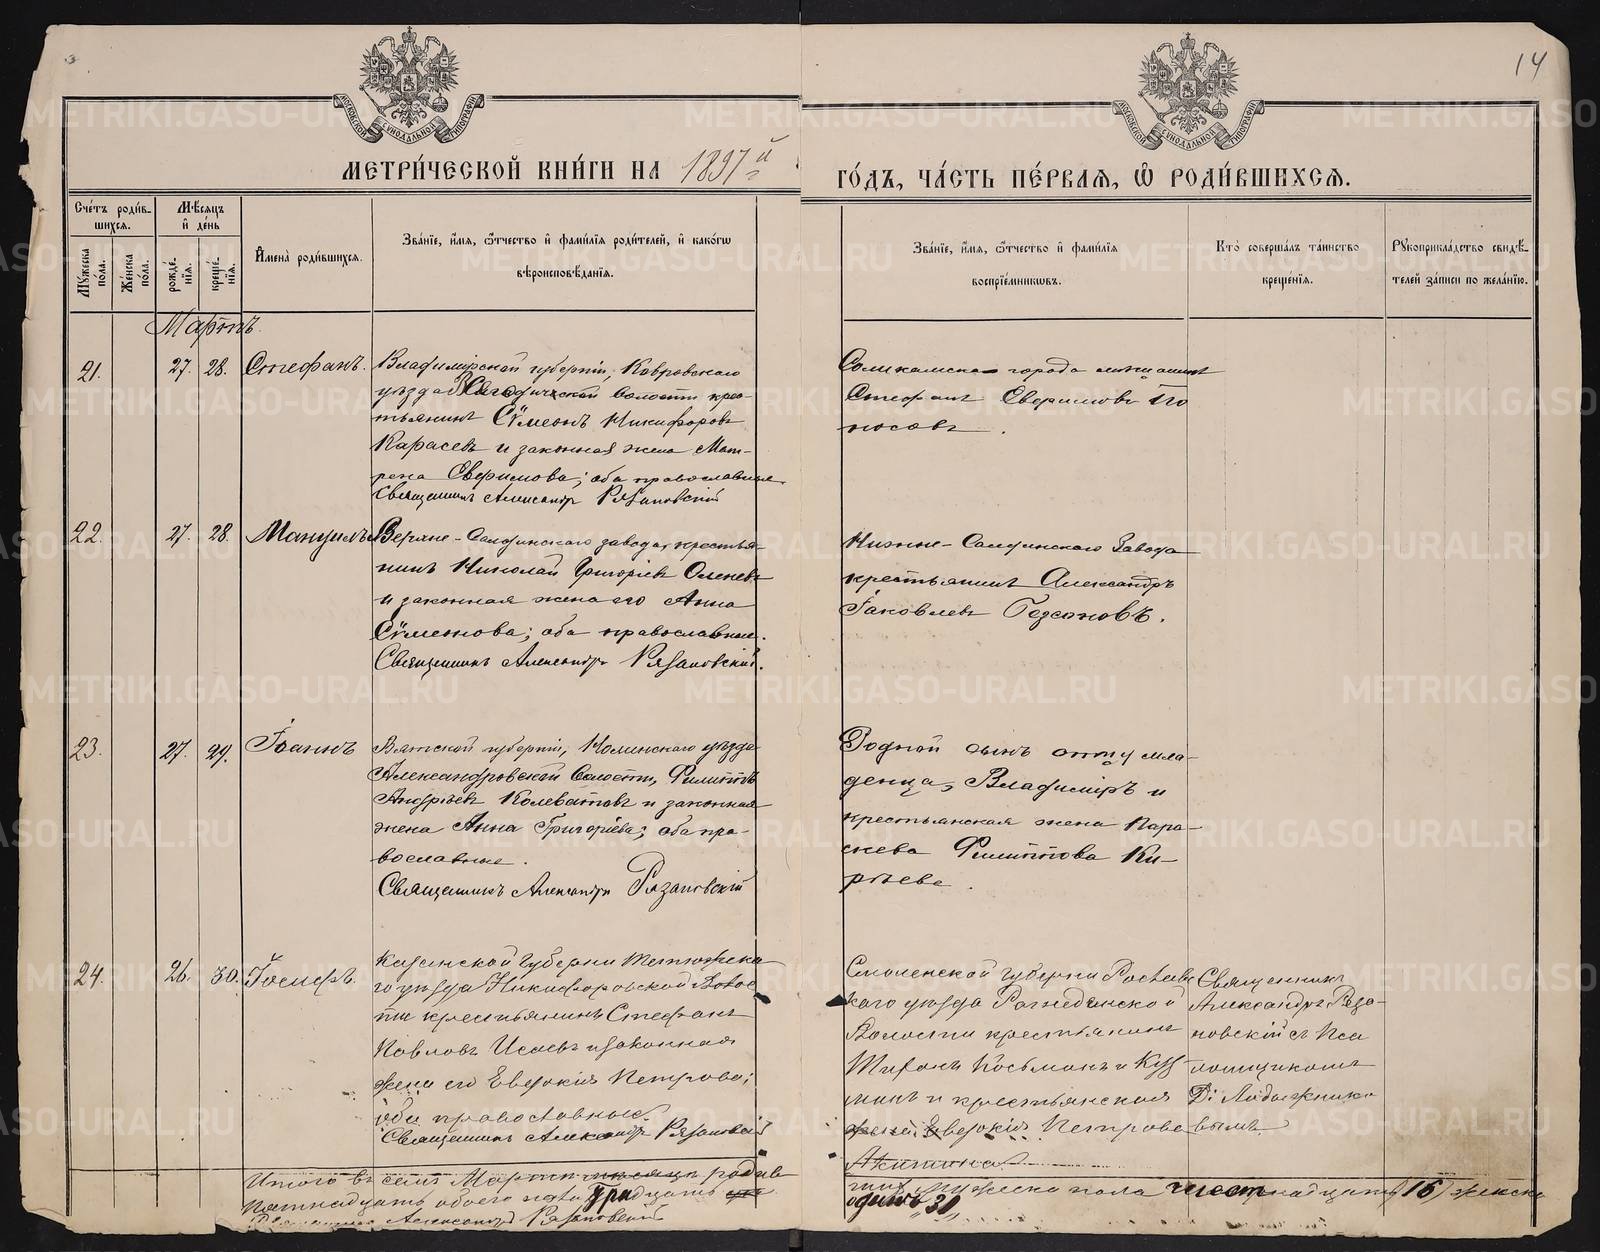 14
МОСКОВСКОЙ СИНОДАЛЬНОЙ ТИПОГРАФІИ
МОСКОВСКОЙ СИНОДАЛЬНОЙ ТИПОГРАФІИ
МЕТРИ́ЧЕСКОЙ КНИ́ГИ НА 1897й
ГО́ДЪ, ЧА́СТЬ ПЕ́РВАѦ, Ѡ РОДИ́ВШИХСѦ.
Сче́тъ роди́в-
шихсѧ.
Мѣ́сѧцъ
и҆ де́нь
Мꙋ́жеска по́ла.
Же́нска по́ла.
рожде́нїѧ.
креще́нїѧ.
И҆мена̀ роди́вшихсѧ.
Зва́нїе, и҆́мѧ, ѻ҆́тчество и҆ фами́лїѧ роди́телей, и҆ како́гѡ
вѣроисповѣ́данїѧ.
Зва́нїе, и҆́мѧ, ѻ҆́тчество и҆ фами́лїѧ
воспрїе́мникѡвъ.
Кто̀ соверша́лъ та́инство
креще́нїѧ.
Рꙋкоприкла́дство свидѣ́-
телей за́писи по жела́нїю.
Мартъ.
21. 27. 28. Стефанъ.
Владимірской губерніи, Ковровскаго
уѣзда волости крес-
тьянинъ Сѵмеонъ Никифоровъ
Карасевъ и законная жена Мат-
рена Евфимова; оба православные
Священникъ Александръ Рязановскій
Соликамска города мѣщанинъ
Стефанъ Евфимовъ По
носовъ.
22. 27. 28. Мануилъ
Верхне-Салдинскаго завода, крестья-
нинъ Николай Григоріевъ Оленевъ
и законная жена его Анна
Сѵмеонова; оба православные.
Священникъ Александръ Рязановскій.
Нижне-Салдинскаго Завода
крестьянинъ Александръ
Іаковлевъ
23. 27. 29. Іоаннъ
Вятской губерніи, Нолинскаго уѣзда
Александровской Волости, Филиппъ
Андреевъ Колеватовъ и законная
жена Анна Григоріева; оба пра-
вославные.
Священникъ Александръ Рязановскій
Родной сынъ отцу мла-
денца, Владиміръ и
крестьянская жена Пара-
скева Филиппова Ки-
рѣева.
24. 26. 30. Іосифъ.
Казанской Губерни Тетюжска
го уѣзда Никифоровской Волос
ти крестьянинъ Стефанъ
Павловъ Исаевъ изаконная
жена его Евдокия Петрова;
оба православные
Священникъ Александръ Рязановскій
Смоленской Губерни Рославс
каго уѣзда Рогнединской
Волости крестьянинъ
Тихонъ Косьминъ и Куз
минъ и крестьянская
жена Евдокия Петрова
Акинина
Священникъ
Александръ Ряза-
новскій съ Пса
ломщикомъ
Ді. Ладыжнико
вымъ
Итого въ семъ Мартѣ мѣсяцѣ родив
шихся мужеска пола шестнадцать, 16 женска
пятнадцать обоего пола тридцать
одинъ 31
Священникъ Александръ Рязановскій
METRIKI.GASO-URAL.RU